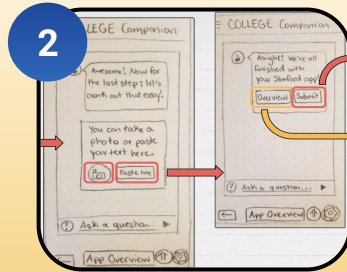 2
LEGE Companion
Awesome! Now for
the last step; let's
crank out that essay!
You can take a
photo or paste
your text here.
Paste here
? Ask a question...
App Overview
COLLEGE Companion
Alright! We're all
finished with
your Stanford app!
Overview
Submit
? Ask a question...
App Overview